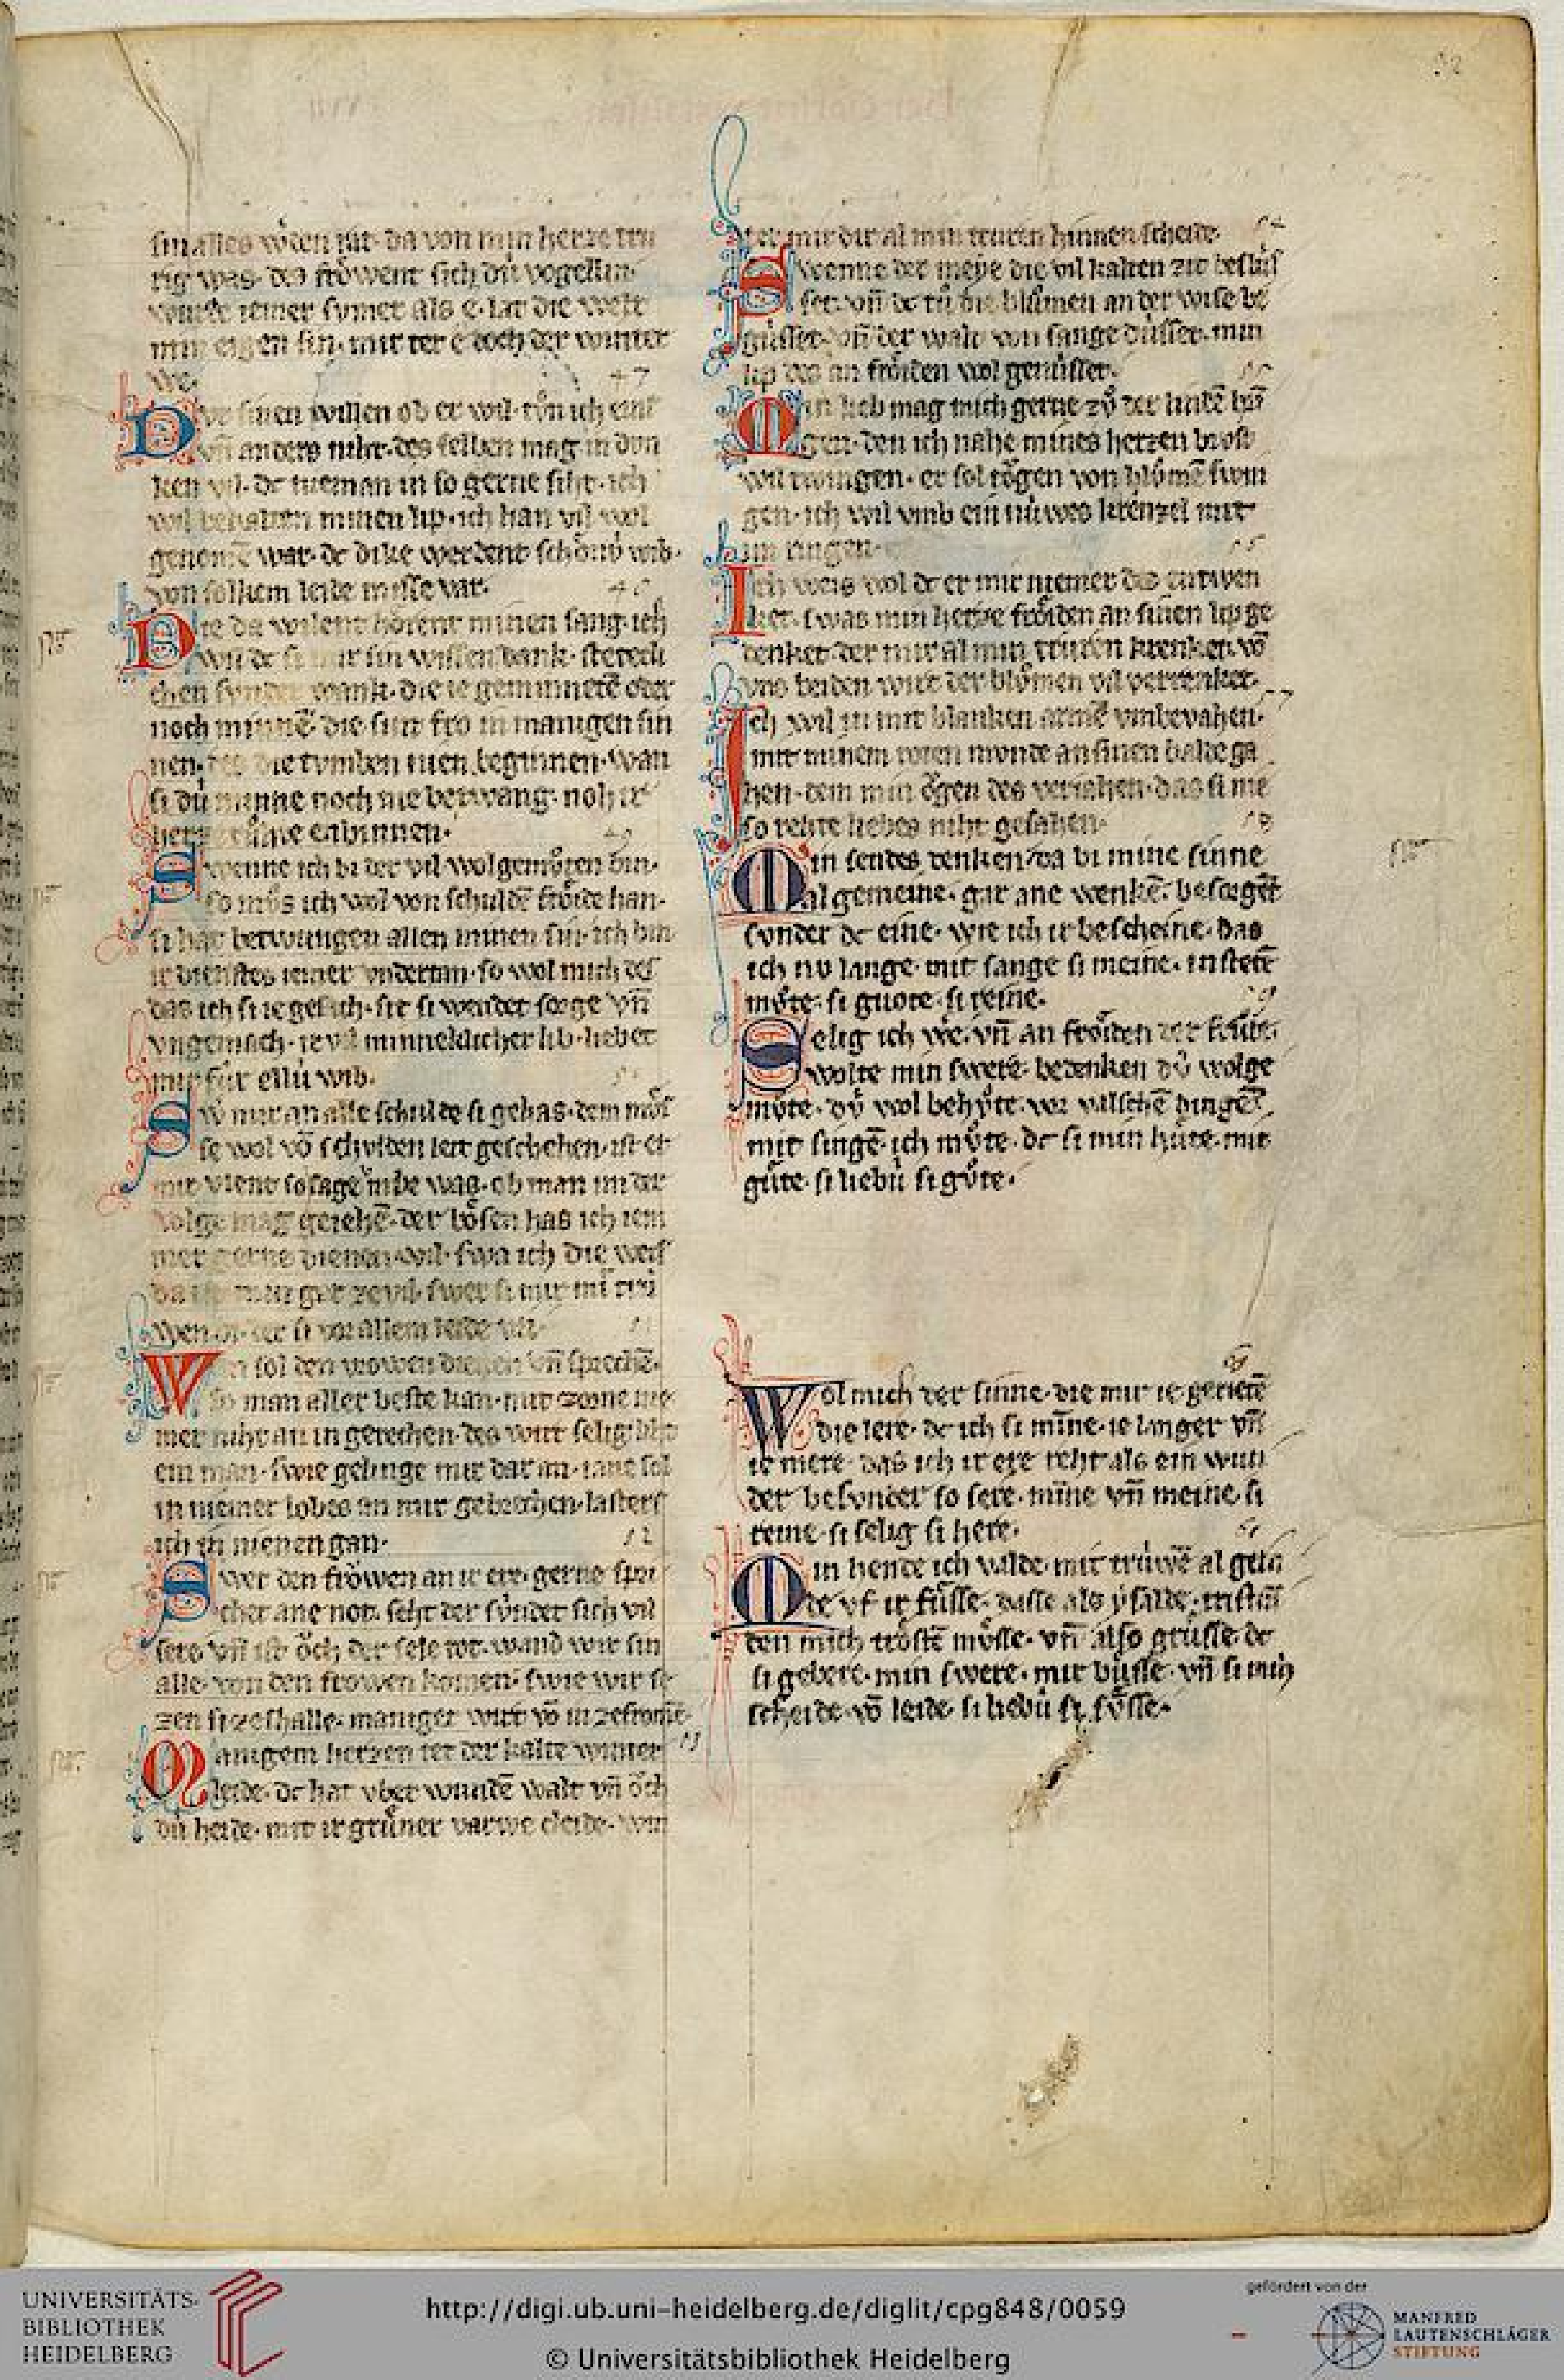 32
sin alles wͤren rat· da von min herze tru
rig was· des frôwent sich dú vogellin·
wurde iemer sumer als e· lat die welt
min eigen sin· mir tet e doch der winter
we· 47
Dvr sinen willen ob er wil· tv̊n ich eins
vñ anders niht· des selben mag in dun
ken vil· dc nieman in so gerne siht· ich
wil behalten minen lip· ich han vil wol
genomē war· dc dike werdent schônú wib·
von solkem leide misse var· 48
Die da wilent hôrent minen sang· ich
wil dc si mir sin wissen dank· stetecli
chen sunder wank· die ie geminnetē oder
noch minnē· die sint fro in manigen sin
nen· des die tvmben nien beginnen· wan
si dú minne noch nie betwang· noh ir
herze rûwe enbinnen· 49
Swenne ich bi der vil wolgemv̊ten bin·
so mv̊s ich wol von schuldē frôide han·
si hat betwungen allen minen sin· ich bin
ir dienstes iemer vndertan· so wol mich des
das ich si ie gesach· sit si wendet sorge vñ
vngemach· ir vil minneklicher lib· lieber
mir für ellú wib· 50
Sw mir an alle schulde si gehas· dem mv̊s
se wol vō schulden leit geschehen· ist er
mir vient
volge mag geiehē· der bôsen has ich iem
mer gerne dienen wil· swa ich die weis
wen 51
Wir sol den vrowen dienen vñ sprechē·
so man aller beste kan· mit zorne nie
mer niht an in gerechen· des wirt selig
ein man· swie gelinge mir dar an· iane sol
in niemer lobes an mir gebrechen· lasters
ich in nienen gan· 52
Swer den frôwen an ir ere· gerne spri
chet ane not· seht der sv́ndet sich vil
sere vñ ist ôch der sele tot· wand wir sin
alle· von den frowen komen· swie wir si
zen si zeshalle· maniger wirt vō in zefromē·
Manigem herzen tet der kalte winter 53
leide· dc hat vber wundē walt vñ ôch
dú heide· mit ir grûner varwe cleide· win
ter mir dir al min truren hinnen scheide· 54
Swenne der meye die vil kalten zit beslús
set· vñ dc tv̊ die blůmen an der wise be
gússet· vñ der walt von sange dússet· min
lip des an frôiden wol genússet· 55
Min lieb mag mich gerne zv̊ der lindē brī
gen· den ich nahe mines herzen brust
wil twingen· er sol tôgen von blůmē swin
gen· ich wil vmb ein núwes krenzel mit
im ringen· 56
Ich weis wol dc er mir niemer des entwen
ket· swas min herze frôiden an sinen lip ge
denket· der mir al min trúren krenket· vō
vns beiden wirt der blůmen vil verrenket· 57
Ich wil in mit blanken armē vmbevahen·
mit minem roten munde an sinen balde ga
hen· dem min ôgen des veriahen· das si nie
so rehte liebes niht gesahen· 58
Min sendes denken· da bi mine sinne
algemeine· gar ane wenkē· besorgēt
sunder dc eine· wie ich ir bescheine· das
ich nv lange· mit sange si meine· in stetē
mv̊te· si guote· si reine· 59
Selig ich we· vñ an frôiden der frûte·
wolte min swere· bedenken dú wolge
mv̊te· dú wol behv̊te· vor valschē dingē·
mit singē· ich mv̊te· dc si min hûte· mit
gûte· si liebú si gv̊te·
60
Wol mich der sinne· die mir ie gerietē
die lere· dc ich si mīne· ie langer vñ
ie mere· das ich ir ere reht als ein wun
der· besunder so sere· mīne vñ meine· si
reine· si selig si here· 61
Min hende ich valde· mit trúwē al gerñ
de vf ir fûsse· dasse als ysalde· tristrā
den mich trôstē mv̊sse· vñ also grûsse· dc
si gebere· min swere· mir bûsse· vñ si mih
scheide· vō leide· si liebú si sv̊sse·
UNIVERSITÄTS-
BIBLIOTHEK
HEIDELBERG
http://digi.ub.uni-heidelberg.de/diglit/cpg848/0059
© Universitätsbibliothek Heidelberg
gefördert von der
MANFRED
LAUTENSCHLÄGER
STIFTUNG